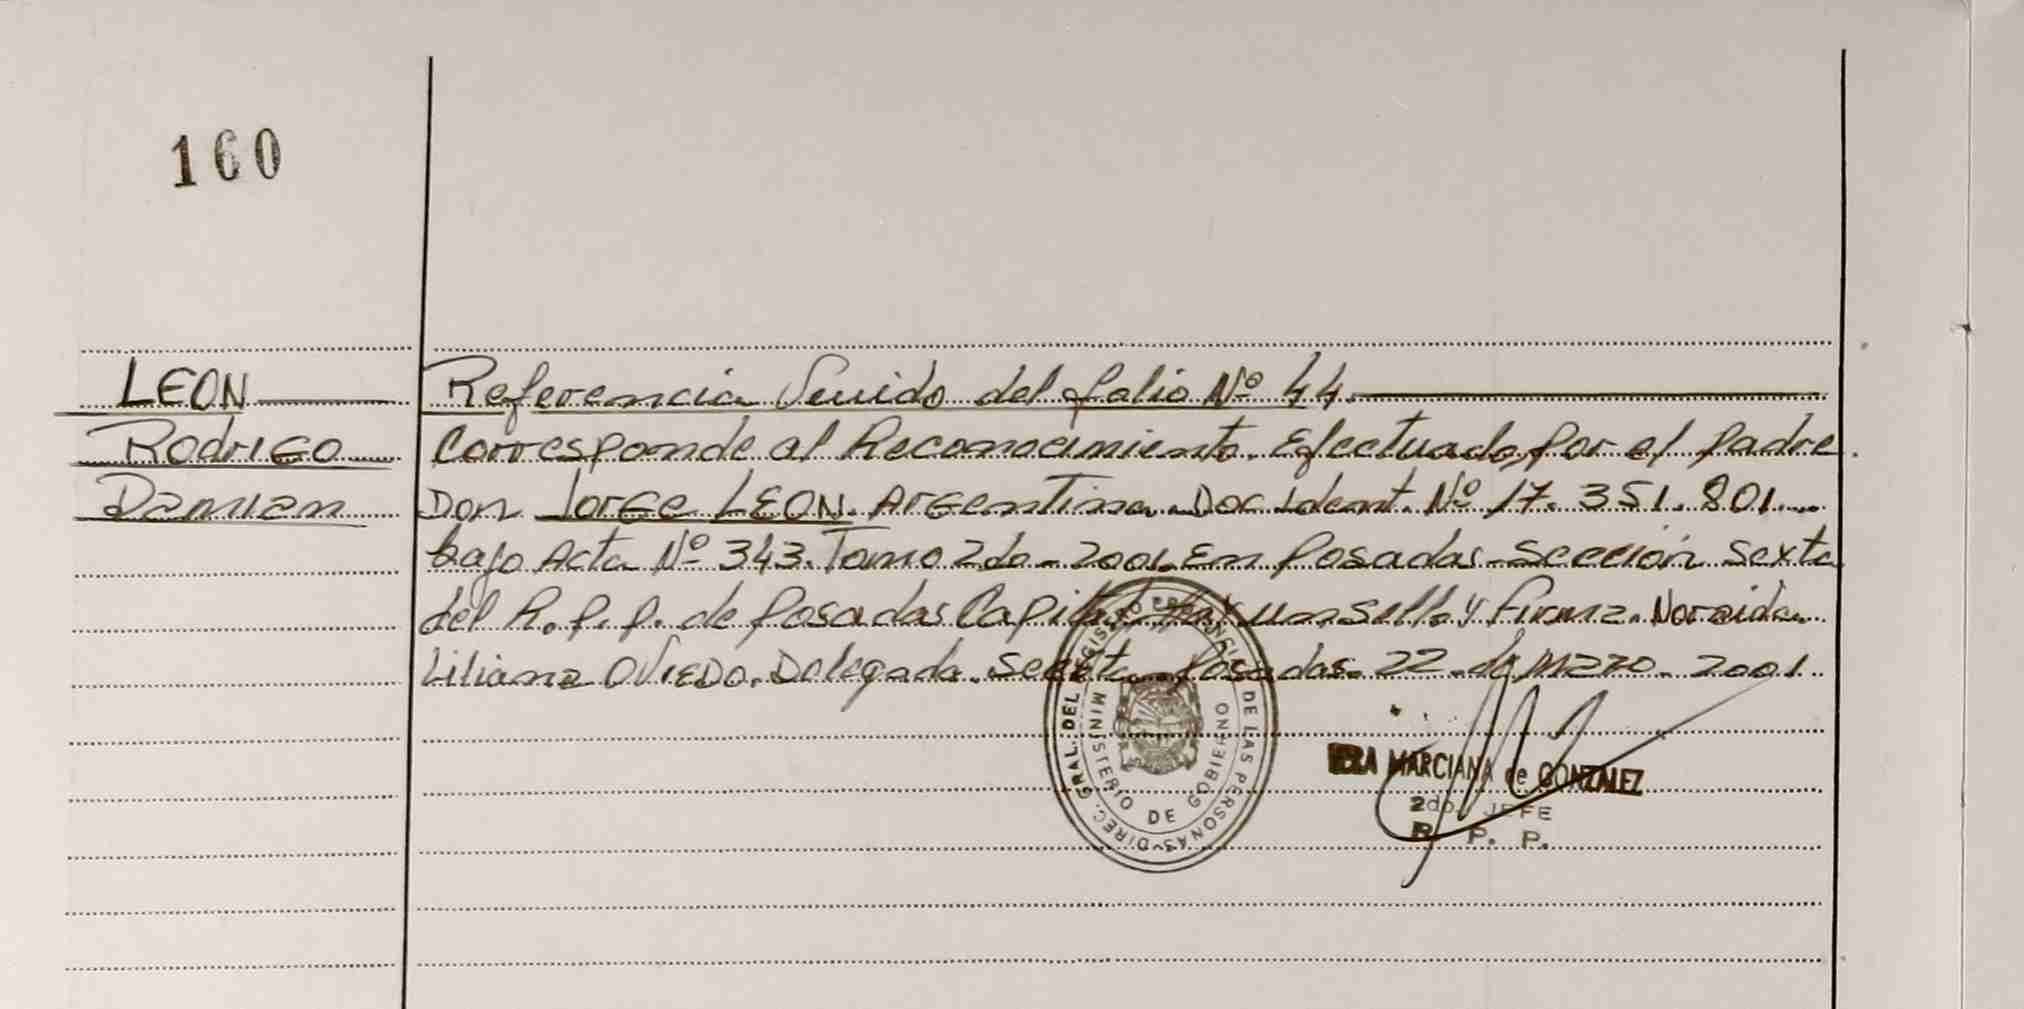 160
LEON
Rodrigo
Damian
Referencia Venido del folio Nº 44.
Corresponde al Reconocimiento. Efectuado, por el padre.
Don Jorge LEON. Argentino. Doc. Ident. Nº 17.351.801....
bajo Acta Nº 343. Tomo 2do - 2001. En Posadas - Sección Sexta
del R.P.P. de Posadas Capital. Hay un Sello y Firma. Noraida
Liliana OVIEDO. Delegada. Sexta. Posadas. 22 - de Marzo - 2001
DIREC. GRAL. DEL REGISTRO PROVINCIAL DE LAS PERSONAS
MINISTERIO DE GOBIERNO
MARCIANA de GONZALEZ
2do. JEFE
R. P. P.